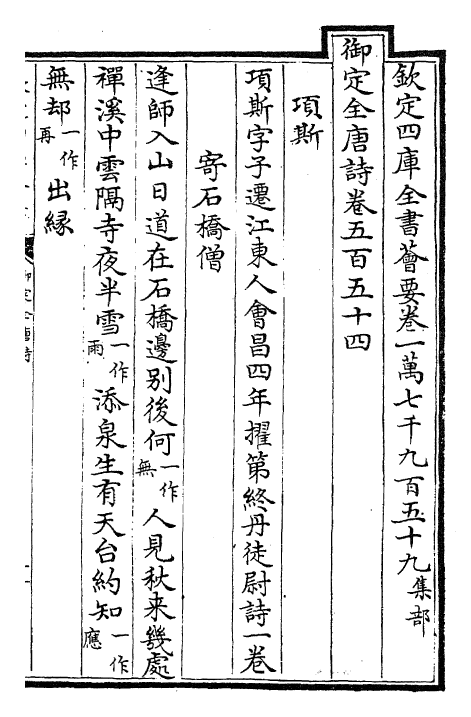 欽定四庫全書薈要卷一萬七千九百五十九集部
御定全唐詩卷五百五十四
項斯
項斯字子遷江東人會昌四年擢第終丹徒尉詩一卷
寄石橋僧
逢師入山日道在石橋邊别後何一作無人見秋来幾處
禪溪中雲隔寺夜半雪一作雨添泉生有天台約知一作應
無却一作再出緣